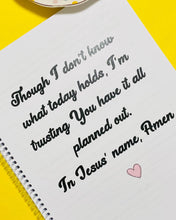 Though I don't know
what today holds, I'm
trusting You have it all
planned out.
In Jesus' name, Amen